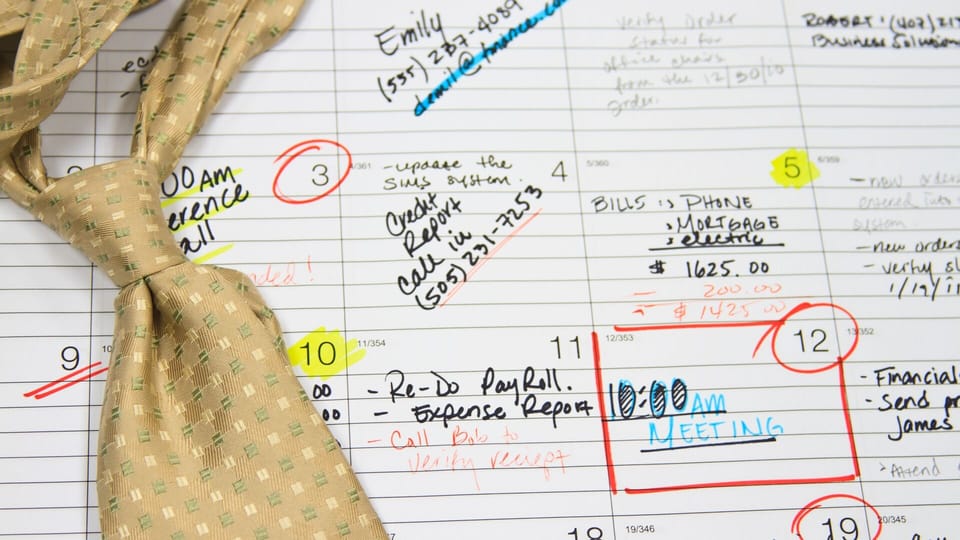 Emily
(555) 237-4089
verify order
status for
office chairs
from the 12/30/10
order.
ROBERT: (407)
Business Solution
3
00 AM
erence
all
nded!
4/361
4
- update the
SIMS system.
Credit
Report
Call in
(505) 231-7253
5/360
5
BILLS: > PHONE
> MORTGAGE
> electric
$ 1625.00
- 200.00
= $ 1425.00
6/359
- new orders
system.
- new order
- verify
1/19/11
9
10
10
00
00
11/354
11
- Re-Do PayRoll.
- Expense Report
- Call Bob to
verify receipt
12/353
12
10:00 AM
MEETING
13/352
- Financials
- Send
James
> Attend
18
19/346
19
20/345